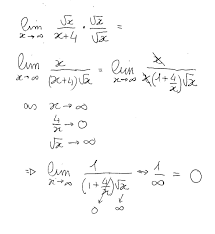 lim x→∞ √x/(x+4) · √x/√x =
lim x→∞ x/((x+4)√x) = lim x→∞ x/(x(1+4/x)√x)
as x→∞
4/x → 0
√x → ∞
⇒ lim x→∞ 1/((1+4/x)√x) → 1/∞ = 0
0 ∞